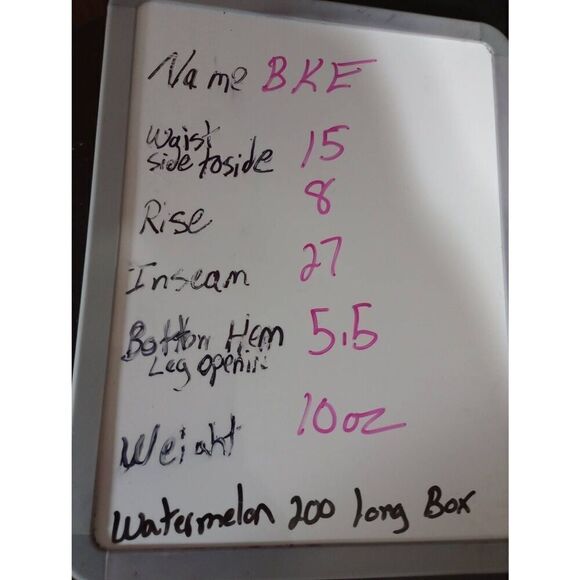 Name BKE
Waist
side to side 15
Rise 8
Inseam 27
Bottom Hem 5.5
Leg opening
Weight 10oz
Watermelon 200 long Box